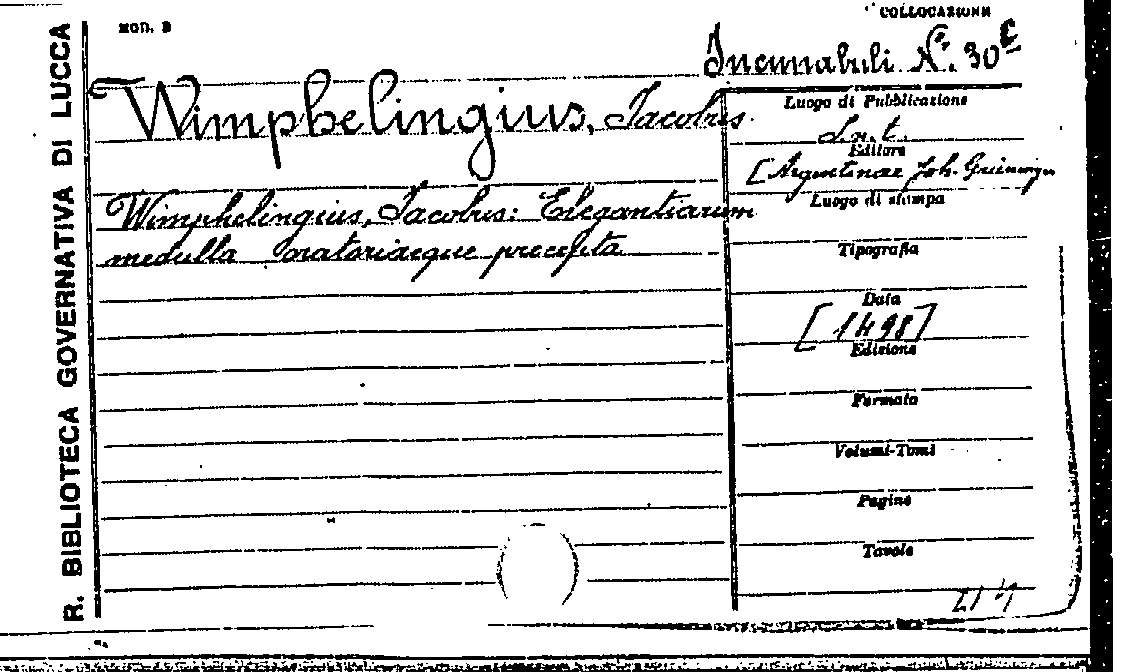 R. BIBLIOTECA GOVERNATIVA DI LUCCA
MOD. B
COLLOCAZIONE
Incunabuli N.º 30 c
Wimphelingius, Jacobus
Wimphelingius, Jacobus: Elegantiarum
medulla oratoriaeque precepta
Luogo di Pubblicazione
S.n.t.
Editore
[Argentinae Joh.
Luogo di stampa
Tipografia
Data
[1498]
Edizione
Formato
Volumi-Tomi
Pagine
Tavole